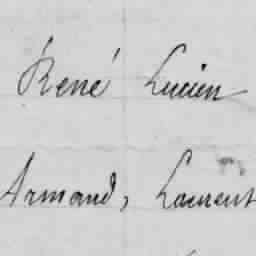 René Lucien
Armand, Laurent